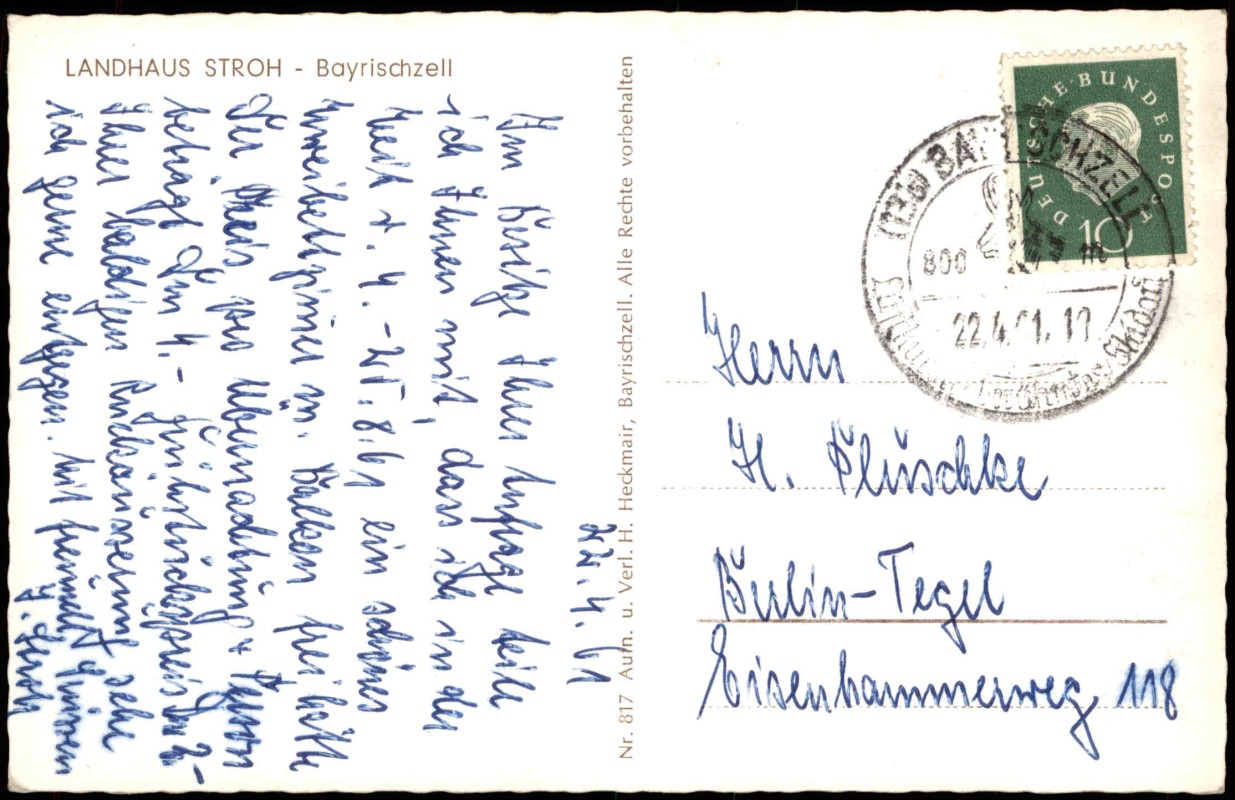 LANDHAUS STROH - Bayrischzell
22.4.61
Im Besitze Ihrer Anfrage teile
ich Ihnen mit, dass ich in der
Zeit v. 4. - 25.8.61 ein schönes
Zweibettzimmer m. Balkon frei hätte
Der Preis pro Übernachtung + Person
beträgt Dm 4.- Frühstückspreis Dm 2.-
Ihrer baldigen Rückäusserung sehe
ich gerne entgegen. Mit freundl. Grüssen
Stroh
Nr. 817 Aufn. u. Verl. H. Heckmair, Bayrischzell. Alle Rechte vorbehalten
DEUTSCHE BUNDESPOST
10
BAYRISCHZELL
800 m
22.4.61.
berühmtes Skidorf
Herrn
H. Plüschke
Berlin-Tegel
Eisenhammerweg 118